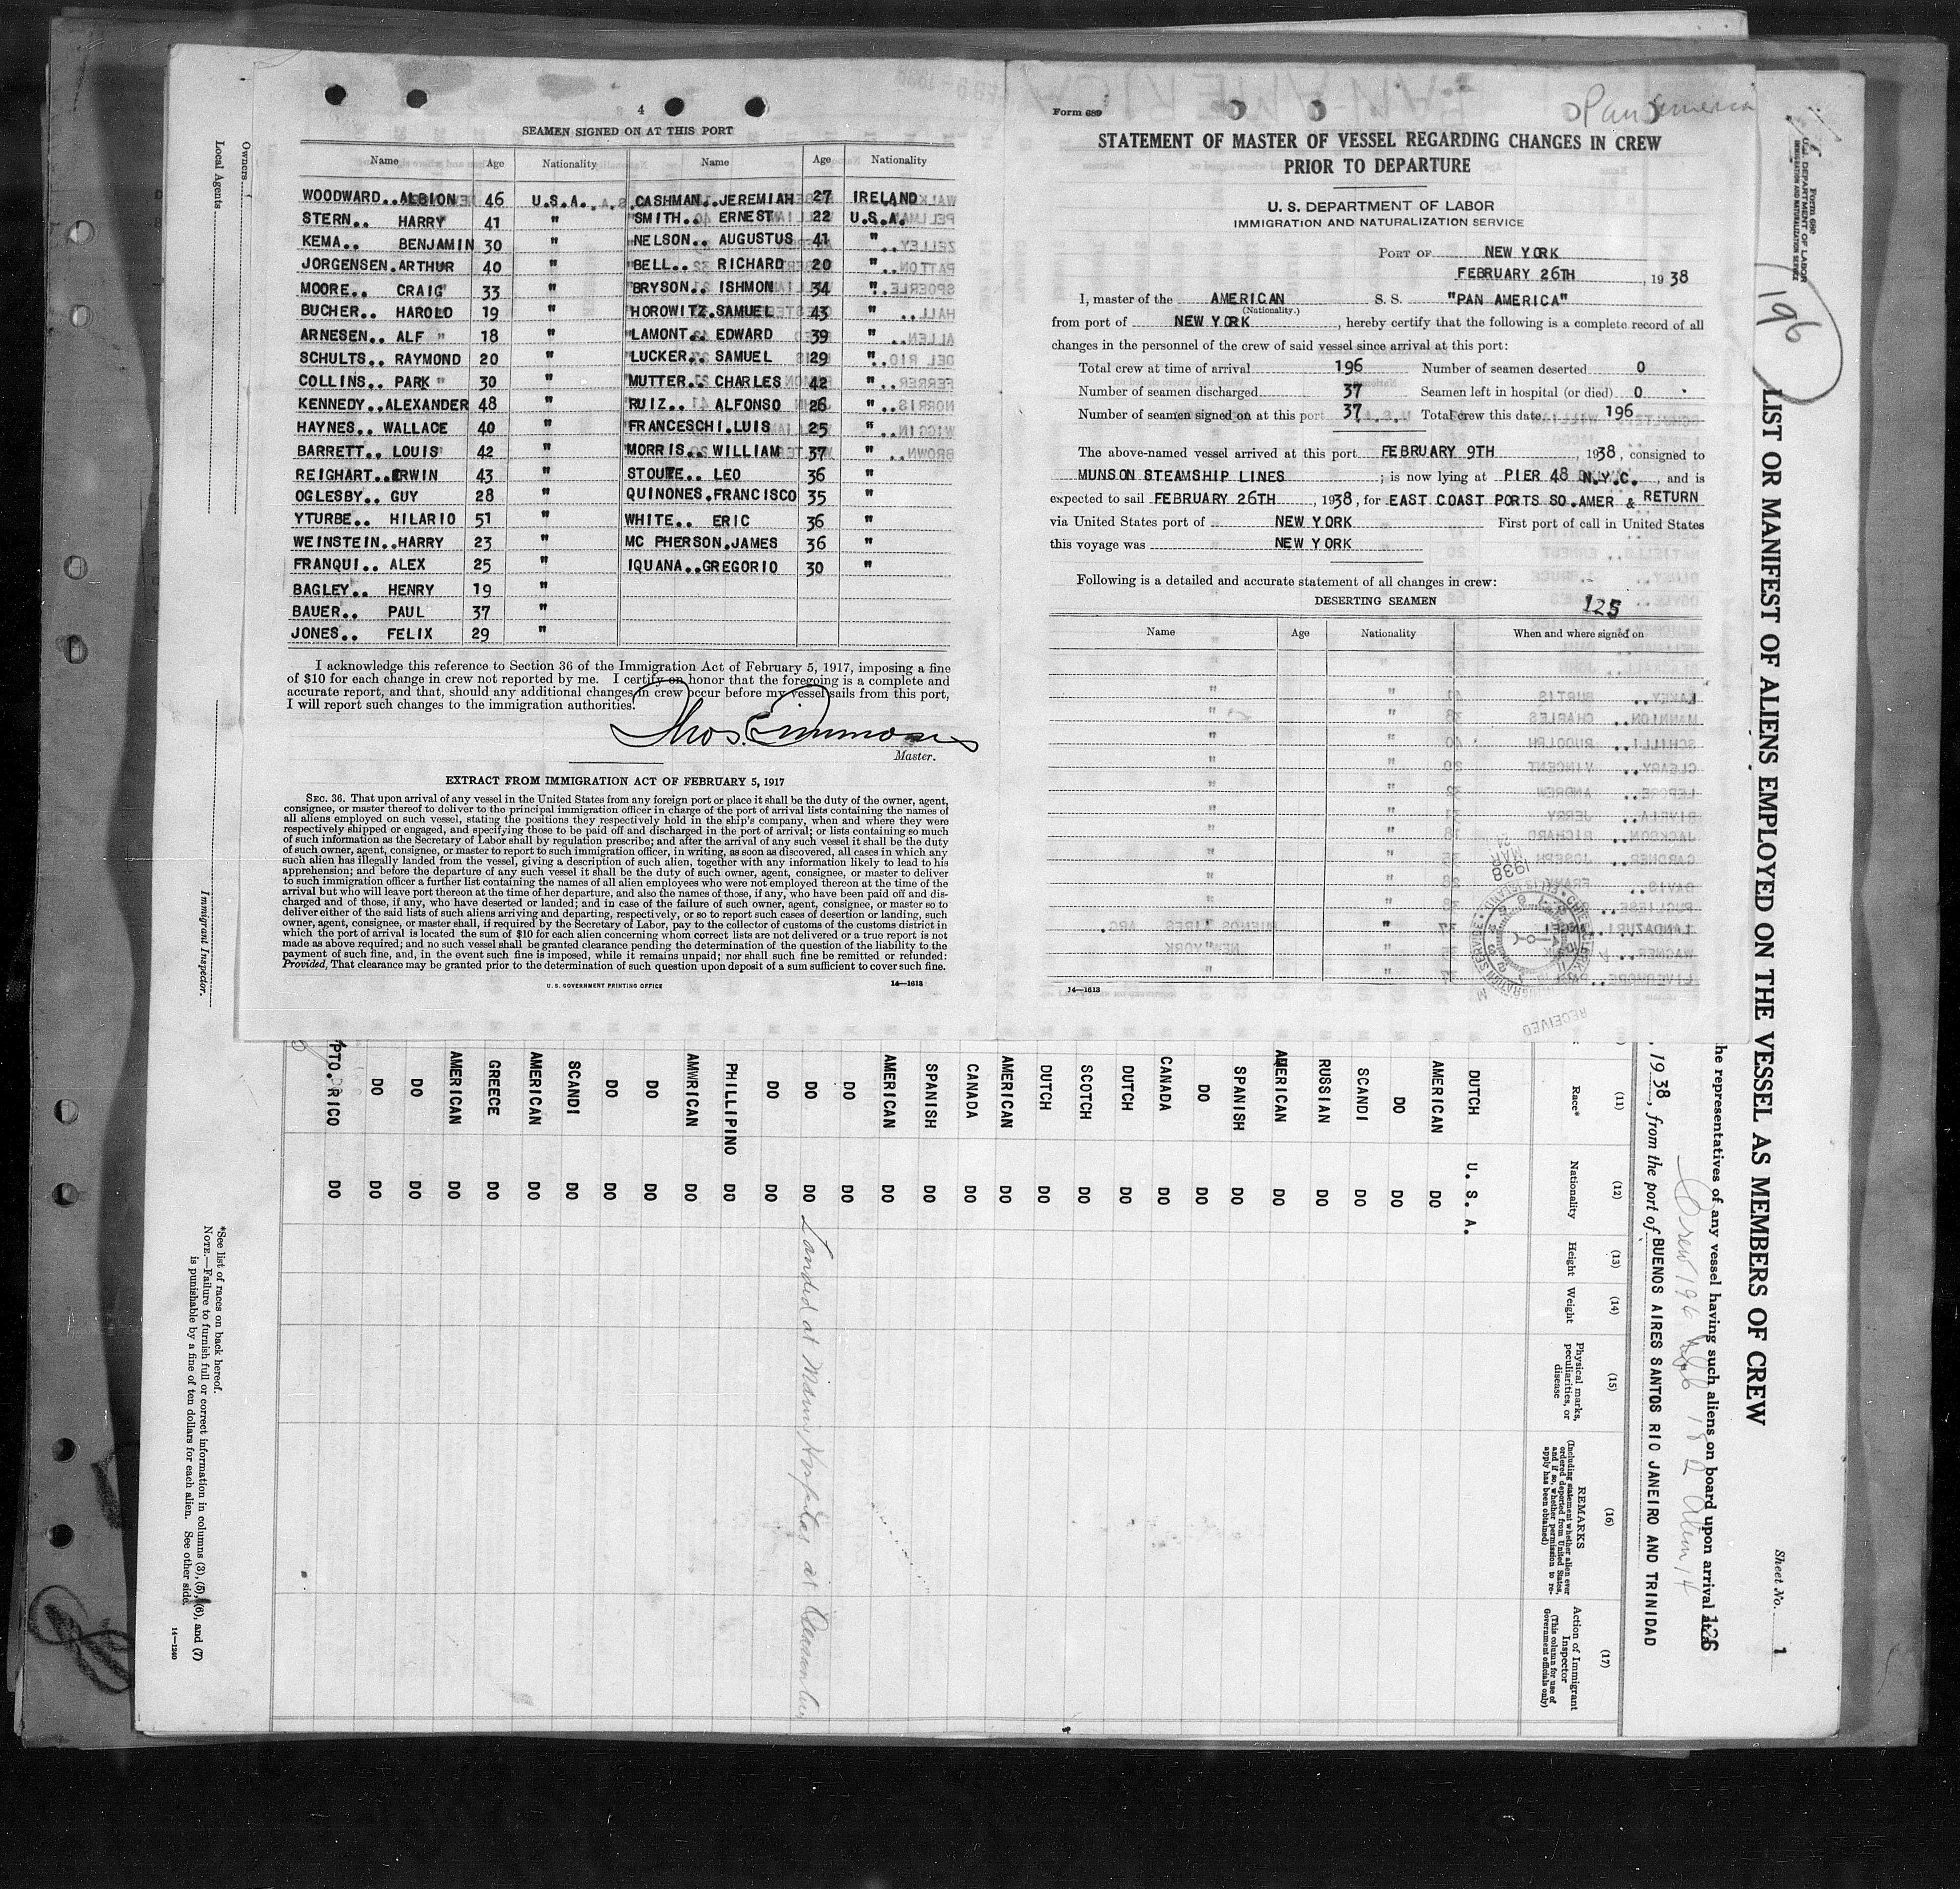 4
SEAMEN SIGNED ON AT THIS PORT
Name Age Nationality Name Age Nationality
WOODWARD.. ALBION 46 U.S.A. CASHMAN.. JEREMIAH 27 IRELAND
STERN.. HARRY 41 " SMITH.. ERNEST 22 U.S.A.
KEMA.. BENJAMIN 30 " NELSON.. AUGUSTUS 41 "
JORGENSEN. ARTHUR 40 " BELL.. RICHARD 20 "
MOORE.. CRAIG 33 " BRYSON.. ISHMON 34 "
BUCHER.. HAROLD 19 " HOROWITZ. SAMUEL 43 "
ARNESEN.. ALF 18 " LAMONT.. EDWARD 39 "
SCHULTS.. RAYMOND 20 " LUCKER.. SAMUEL 29 "
COLLINS.. PARK 30 " MUTTER.. CHARLES 42 "
KENNEDY.. ALEXANDER 48 " RUIZ.. ALFONSO 26 "
HAYNES.. WALLACE 40 " FRANCESCHI. LUIS 25 "
BARRETT.. LOUIS 42 " MORRIS.. WILLIAM 37 "
REIGHART.. ERWIN 43 " STOUTE.. LEO 36 "
OGLESBY.. GUY 28 " QUINONES. FRANCISCO 35 "
YTURBE.. HILARIO 51 " WHITE.. ERIC 36 "
WEINSTEIN.. HARRY 23 " MC PHERSON. JAMES 36 "
FRANQUI.. ALEX 25 " IQUANA.. GREGORIO 30 "
BAGLEY.. HENRY 19 "
BAUER.. PAUL 37 "
JONES.. FELIX 29 "
I acknowledge this reference to Section 36 of the Immigration Act of February 5, 1917, imposing a fine
of $10 for each change in crew not reported by me. I certify on honor that the foregoing is a complete and
accurate report, and that, should any additional changes in crew occur before my vessel sails from this port,
I will report such changes to the immigration authorities.
Thos. Simmons
Master.
EXTRACT FROM IMMIGRATION ACT OF FEBRUARY 5, 1917
SEC. 36. That upon arrival of any vessel in the United States from any foreign port or place it shall be the duty of the owner, agent,
consignee, or master thereof to deliver to the principal immigration officer in charge of the port of arrival lists containing the names of
all aliens employed on such vessel, stating the positions they respectively hold in the ship's company, when and where they were
respectively shipped or engaged, and specifying those to be paid off and discharged in the port of arrival; or lists containing so much
of such information as the Secretary of Labor shall by regulation prescribe; and after the arrival of any such vessel it shall be the duty
of such owner, agent, consignee, or master to report to such immigration officer, in writing, as soon as discovered, all cases in which any
such alien has illegally landed from the vessel, giving a description of such alien, together with any information likely to lead to his
apprehension; and before the departure of any such vessel it shall be the duty of such owner, agent, consignee, or master to deliver
to such immigration officer a further list containing the names of all alien employees who were not employed thereon at the time of the
arrival but who will leave port thereon at the time of her departure, and also the names of those, if any, who have been paid off and dis-
charged and of those, if any, who have deserted or landed; and in case of the failure of such owner, agent, consignee, or master so to
deliver either of the said lists of such aliens arriving and departing, respectively, or so to report such cases of desertion or landing, such
owner, agent, consignee, or master shall, if required by the Secretary of Labor, pay to the collector of customs of the customs district in
which the port of arrival is located the sum of $10 for each alien concerning whom correct lists are not delivered or a true report is not
made as above required; and no such vessel shall be granted clearance pending the determination of the question of the liability to the
payment of such fine, and, in the event such fine is imposed, while it remains unpaid; nor shall such fine be remitted or refunded:
Provided, That clearance may be granted prior to the determination of such question upon deposit of a sum sufficient to cover such fine.
U. S. GOVERNMENT PRINTING OFFICE 14—1613
Form 689
Pan America
STATEMENT OF MASTER OF VESSEL REGARDING CHANGES IN CREW
PRIOR TO DEPARTURE
U. S. DEPARTMENT OF LABOR
IMMIGRATION AND NATURALIZATION SERVICE
PORT OF NEW YORK
FEBRUARY 26TH, 1938
I, master of the AMERICAN S. S. "PAN AMERICA"
(Nationality.)
from port of NEW YORK, hereby certify that the following is a complete record of all
changes in the personnel of the crew of said vessel since arrival at this port:
Total crew at time of arrival 196 Number of seamen deserted 0
Number of seamen discharged 37 Seamen left in hospital (or died) 0
Number of seamen signed on at this port 37 Total crew this date 196
The above-named vessel arrived at this port FEBRUARY 9TH, 1938, consigned to
MUNSON STEAMSHIP LINES; is now lying at PIER 48 N.Y.C., and is
expected to sail FEBRUARY 26TH, 1938, for EAST COAST PORTS SO.AMER & RETURN
via United States port of NEW YORK First port of call in United States
this voyage was NEW YORK
Following is a detailed and accurate statement of all changes in crew:
DESERTING SEAMEN 125
Name Age Nationality When and where signed on
14—1613
RECEIVED
MAR 1938
Form 680
U. S. DEPARTMENT OF LABOR
IMMIGRATION AND NATURALIZATION SERVICE
196
LIST OR MANIFEST OF ALIENS EMPLOYED ON THE VESSEL AS MEMBERS OF CREW
Sheet No. 1
he representatives of any vessel having such aliens on board upon arrival
126
Crew 196
, 1938, from the port of BUENOS AIRES SANTOS RIO JANEIRO AND TRINIDAD
(11) (12) (13) (14) (15) (16) (17)
Race* Nationality Height Weight Physical marks, peculiarities, or disease REMARKS (Including statement whether alien ever ordered deported from United States, and if so, whether permission to re-apply has been obtained) Action of Immigrant Inspector (This column for use of Government officials only)
DUTCH U. S. A.
AMERICAN DO
DO DO
SCANDI DO
RUSSIAN DO
AMERICAN DO
SPANISH DO
DO DO
CANADA DO
DUTCH DO
SCOTCH DO
DUTCH DO
AMERICAN DO
CANADA DO
SPANISH DO
AMERICAN DO
DO DO
DO DO Landed at Marine Hospital at
DO DO
PHILLIPINO DO
AMWRICAN DO
DO DO
DO DO
SCANDI DO
AMERICAN DO
GREECE DO
AMERICAN DO
DO DO
DO DO
PTO. RICO DO
Owners
Local Agents
Immigrant Inspector.
*See list of races on back hereof.
NOTE.—Failure to furnish full or correct information in columns (3), (5), (6), and (7)
is punishable by a fine of ten dollars for each alien. See other side.
14—1240